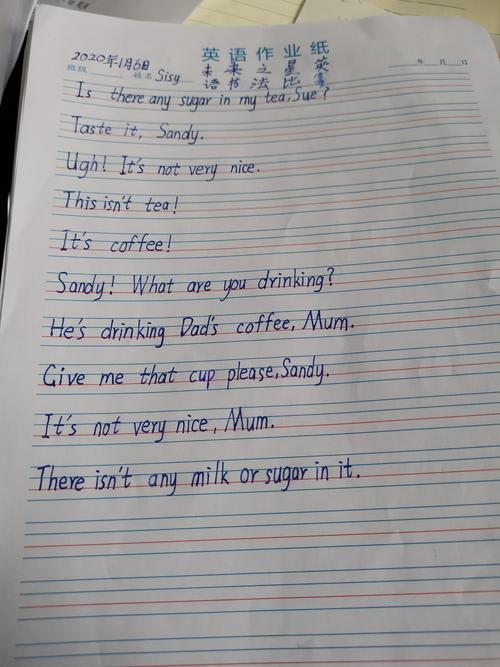 英语作业纸
2020年1月6日
未来之星英
语书法比赛
班级 姓名 Sisy 年 月 日
Is there any sugar in my tea, Sue?
Taste it, Sandy.
Ugh! It's not very nice.
This isn't tea!
It's coffee!
Sandy! What are you drinking?
He's drinking Dad's coffee, Mum.
Give me that cup please, Sandy.
It's not very nice, Mum.
There isn't any milk or sugar in it.